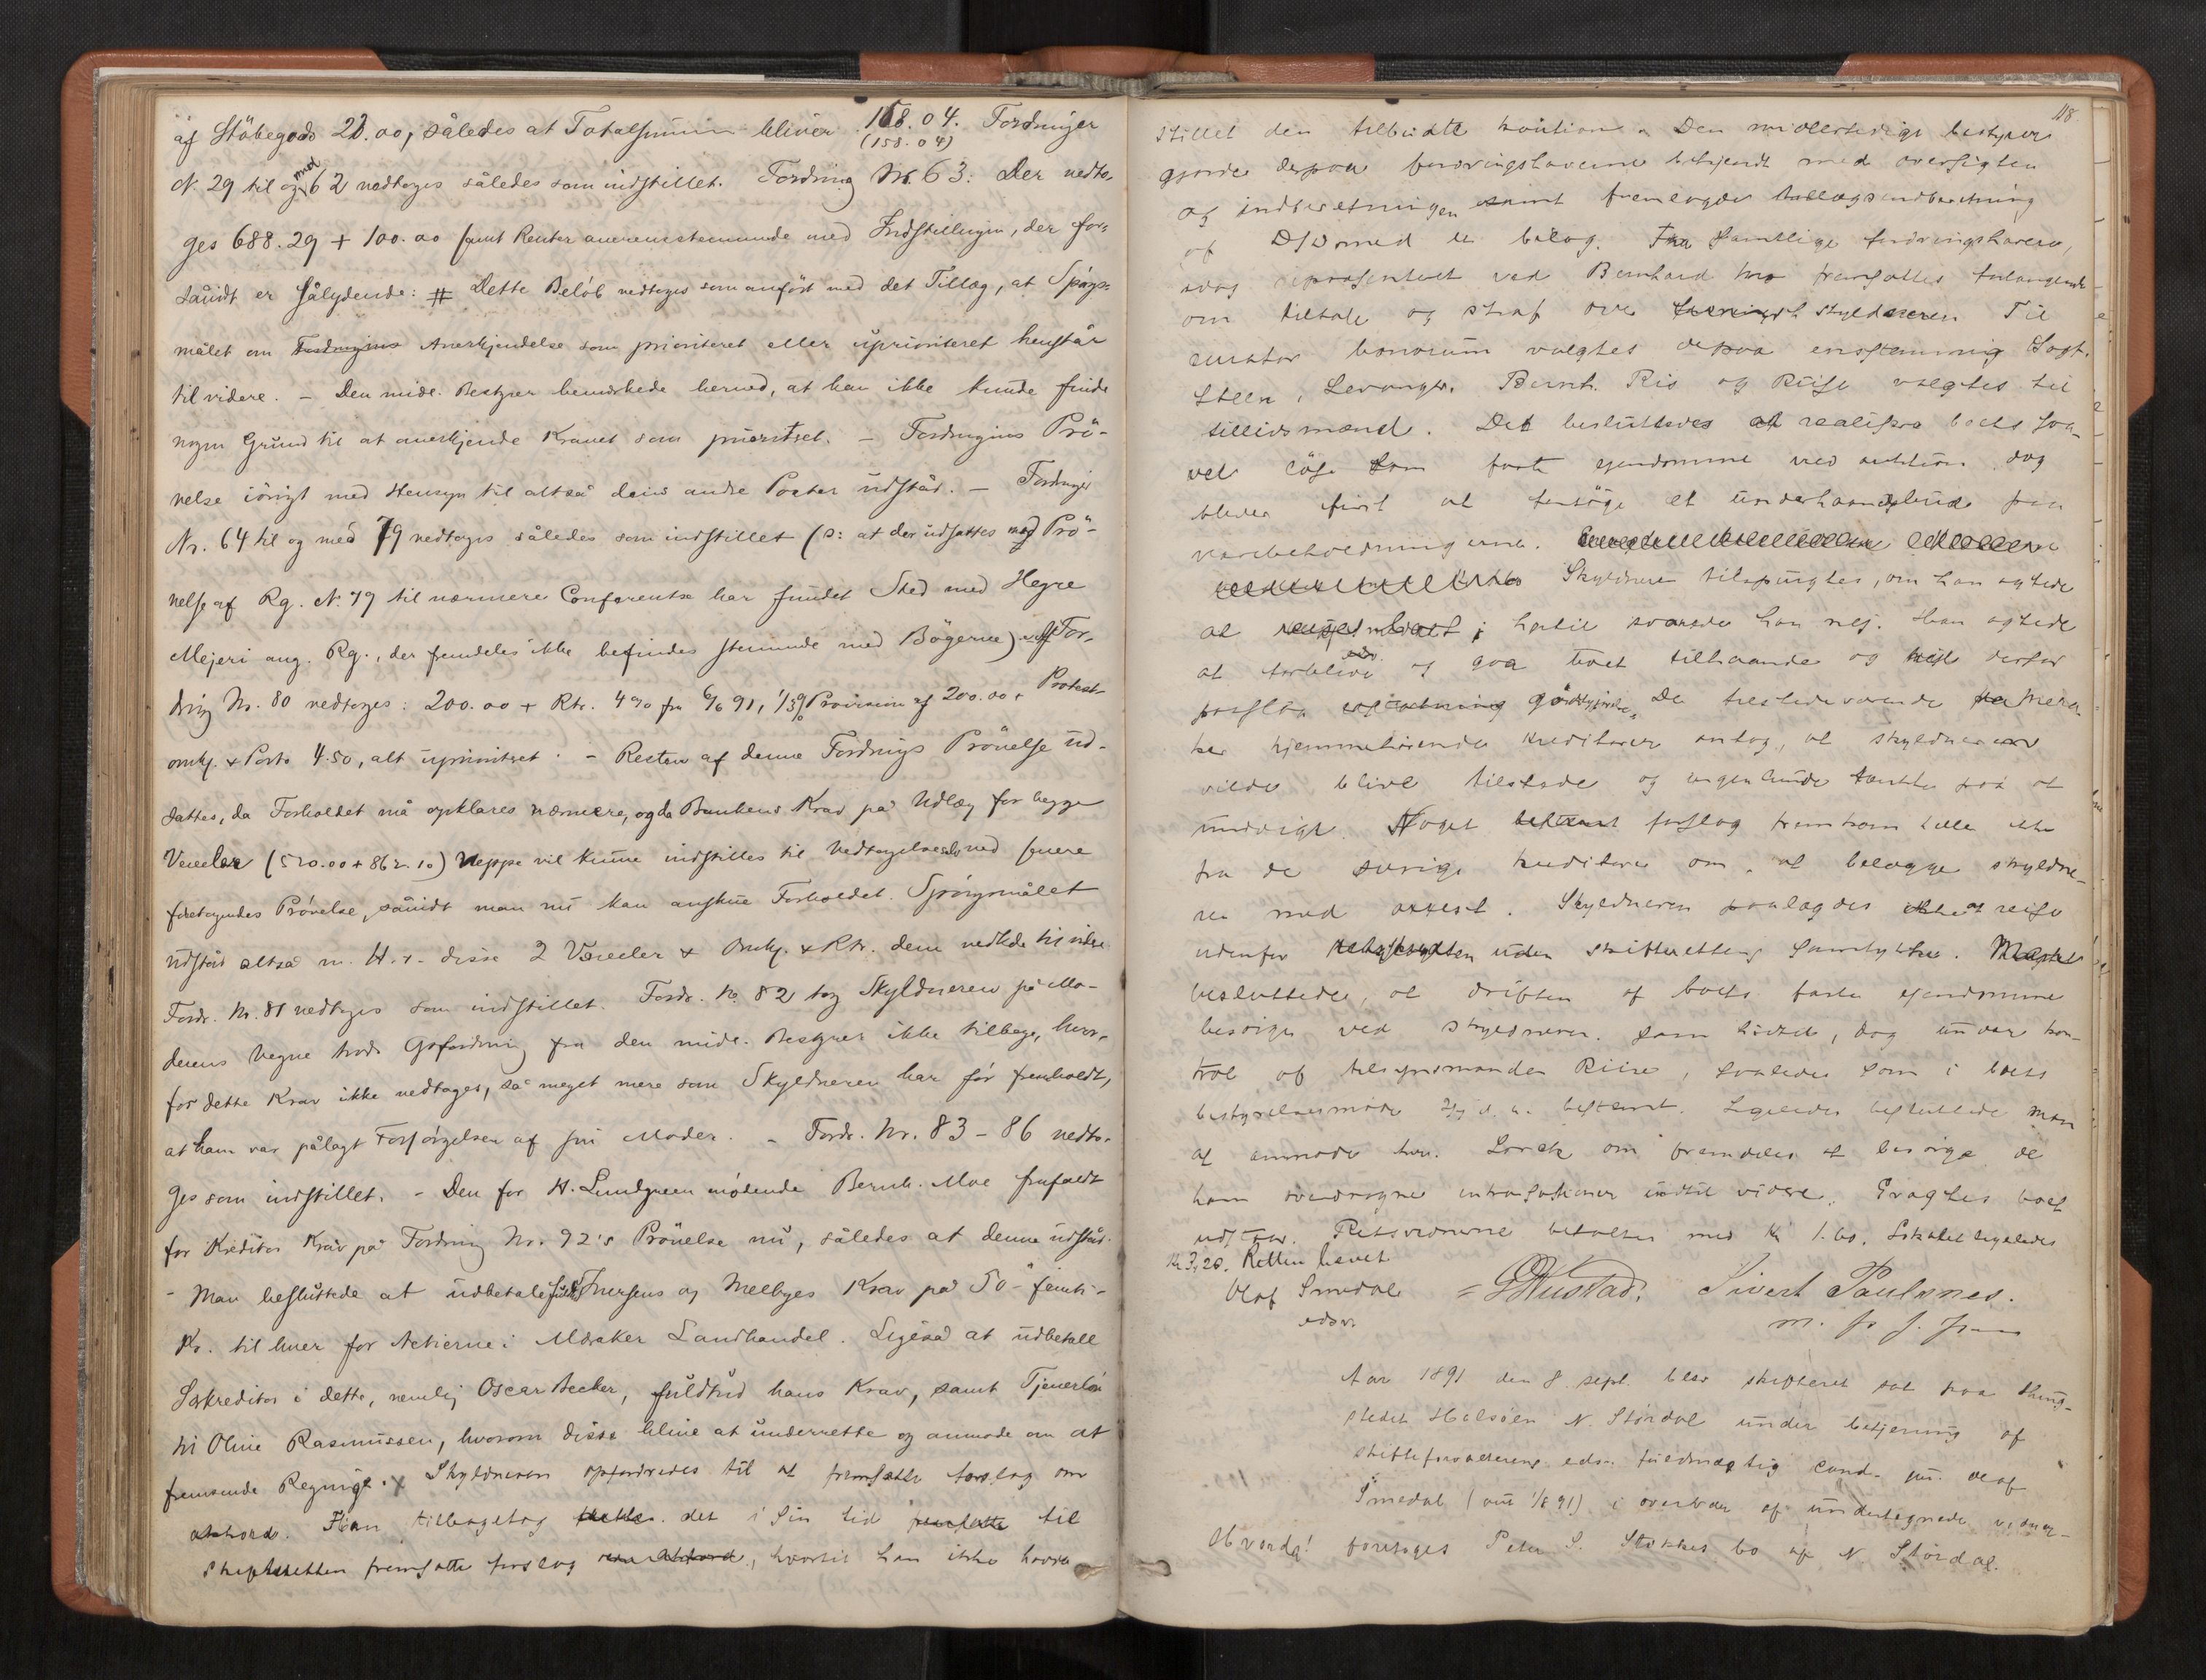 af Stöbegods 21.00, således at Totalsummen bliver 158.04. Fordringer
(158.04)
N. 29 til og med 62 vedtoges således som indstillet. Fordring Nr. 63: Der vedto-
ges 688.29 + 100.00 samt Renter overensstemmende med Indstillingen, der for-
såvidt er sålydende: # Dette Beløb vedtoges som anført med det Tillæg, at Spørgs-
målet om Fordringens Anerkjendelse som prioriteret eller uprioriteret henstår
til videre. – Den midl. Bestyrer bemærkede herved, at han ikke kunde finde
nogen Grund til at anerkjende Kravet som prioritet. – Fordringens Prö-
velse iövrigt med Hensyn til altså dens andre Poster udstår. – Fordringer
Nr. 64 til og med 79 vedtoges således som indstillet (o: at der udsattes med Prö-
velse af Rg. N. 79 til nærmere Conference har fundet Sted med Hegre
Mejeri ang. Rg., der fremdeles ikke befindes stemmende med Bögerne). For-
dring Nr. 80 vedtoges: 200.00 + Rtr. 4% fra 6/6 91, 1/3% Provision af 200.00 + Protest-
omk. & Porto 4.50, alt uprioritet. – Resten af denne Fordrings Prövelse ud-
sattes, da Forholdet må opklares nærmere, og da Bankens Krav på Udlæg for begge
Vexeler (520.00 + 862.10) neppe vil kunne indstilles til Vedtagelse ved senere
foretagendes Prövelse, såvidt man nu kan anskue Forholdet. Spörgsmålet
udstår altså m. H. t. disse 2 Vexeler & Omk. & Rtr. dem vedkde til videre
Fordr. Nr. 81 vedtoges som indstillet. Fordr. Nr. 82 tog Skyldneren på Mo-
derens Vegne trods Opfordring fra den midl. Bestyrer ikke tilbage, hvor-
for dette Krav ikke vedtoges, så meget mere som Skyldneren har för fremholdt,
at ham var pålagt Forsörgelsen af sin Moder. – Fordr. Nr. 83 – 86 vedto-
ges som indstillet. – Den for H. Lundgreen mödende Bernh. Moe frafaldt
for Kreditors Krav på Fordring Nr. 92's Prövelse nu, således at denne udstår.
– Man besluttede at udbetale Iversens og Melbyes Krav på 50 – femti –
Kr. til hver for Actierne i Meraker Landhandel. Ligeså at udbetale
Særkreditor i dette, nemlig Oscar Becker, fuldtud hans Krav, samt Tjenerlön
til Oline Rasmussen, hvorom disse blive at underrette og anmode om at
fremsende Regning. Skyldneren opfordredes til at fremsætte forslag om
akkord. Han tilbagetog det i sin tid til
skifteretten fremsatte forslag om akkord, hvortil han ikke havde
118
stillet den tilbudte kaution. Den midlertidige bestyrer
gjorde derpaa fordringshaverne bekjendt med oversigten
og indberetningen samt fremlagde tillægsindberetning
af D/D med bilag. Fra samtlige fordringshavere,
ogsaa repræsenteret ved Bernhard Moe fremsattes forlangende
om tiltale og straf over skyldneren. Til
curator bonorum valgtes derpaa enstemmig Sagf.
Steen, Levanger. Bernh. Ris og Riise valgtes til
tillidsmænd. Det besluttedes at realisere boets saa-
vel löse som faste ejendomme ved auktion dog
bliver först at forsöge et underhaandsbud paa
varebeholdningerne.
Skyldneren tilspurgtes, om han agtede
at ; hertil svarede han nej. Han agtede
at forblive og gaa boet tilhaande og
De tilstedeværende Mera-
ker hjemmehörende kreditorer antog, at skyldneren
vilde blive tilstede og ingenlunde tænkte paa at
undvige. Noget bestemt forslag fremkom heller ikke
fra de övrige kreditorer om at belægge skyldne-
ren med arrest. Skyldneren paalagdes ikke at reise
udenfor uden skifterettens samtykke. Man
besluttede, at driften af boets faste ejendomme
besörges ved skyldneren som hidtil, dog under kon-
trol af tilsynsmanden Riise, saaledes som i boets
bestyrelsesmöde d. a. bestemt. Ligeledes besluttede man
at anmode hr. Lorck om fremdeles at besörge de
ham overdragne inkassationer indtil videre. Övrigt boet
udstaar. Retsvidnerne betaltes med Kr 1.60. Lokalet ligeledes
Kr 3,20. Retten hævet
Olaf Smedal GHustad. Sivert Paulsnes.
edsv. m. f. p.
Aar 1891 den 8 sept. blev skifteret sat paa thing-
stedet Halsöen N. Stördal under betjening af
skifteforvalterens eds. fuldmægtig cand. jur. Olaf
Smedal (aut 1/8 91) i overvær af undertegnede vidner.
Hvorda! foretoges Peter S. Stokkes bo af N. Stördal.